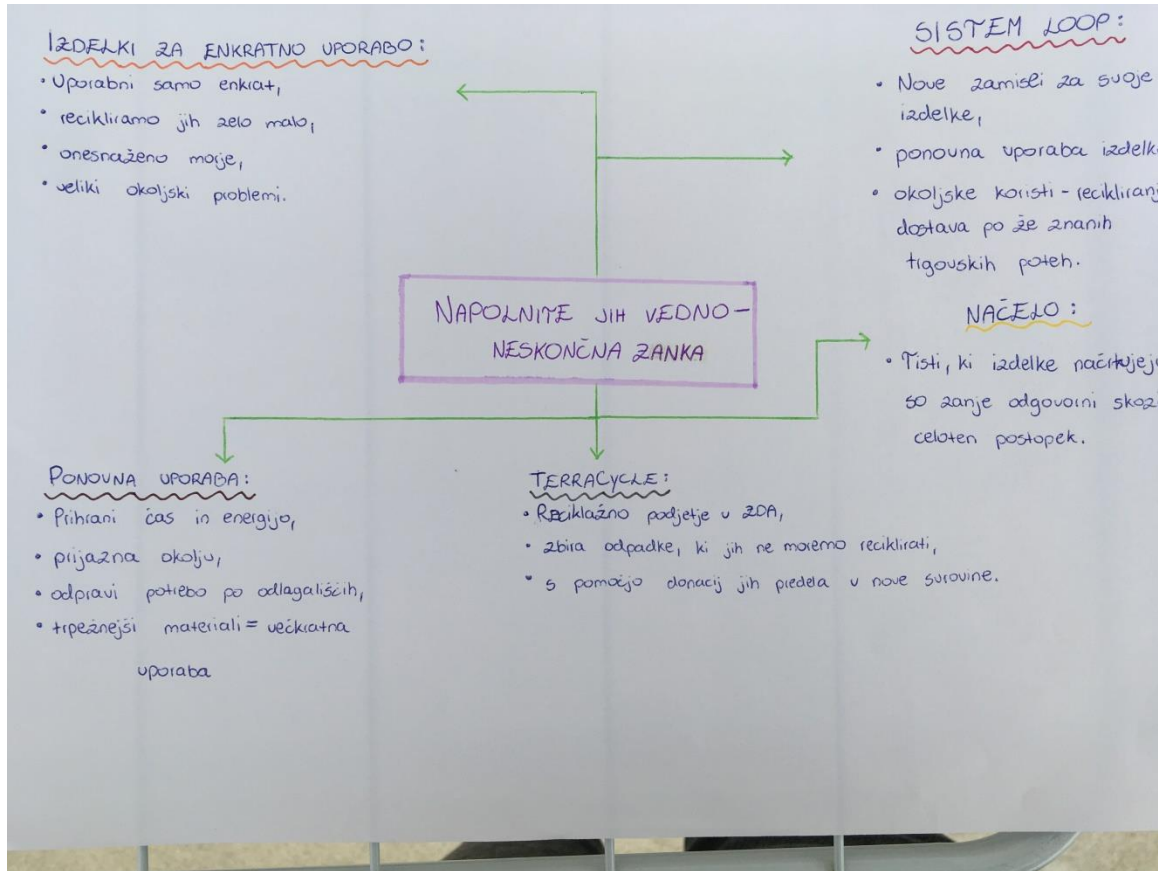 IZDELKI ZA ENKRATNO UPORABO:
• Uporabni samo enkrat,
• recikliramo jih zelo malo,
• onesnaženo morje,
• veliki okoljski problemi.
SISTEM LOOP:
• Nove zamisli za svoje
izdelke,
• ponovna uporaba izdelk
• okoljske koristi - recikliranj
dostava po že znanih
trgovskih poteh.
NAPOLNITE JIH VEDNO -
NESKONČNA ZANKA
NAČELO:
• Tisti, ki izdelke načrtujej
so zanje odgovorni skozi
celoten postopek.
PONOVNA UPORABA:
• Prihrani čas in energijo,
• prijazna okolju,
• odpravi potrebo po odlagališčih,
• trpežnejši materiali = večkratna
uporaba
TERRACYCLE:
• Reciklažno podjetje v ZDA,
• zbira odpadke, ki jih ne moremo reciklirati,
• s pomočjo donacij jih predela v nove surovine.